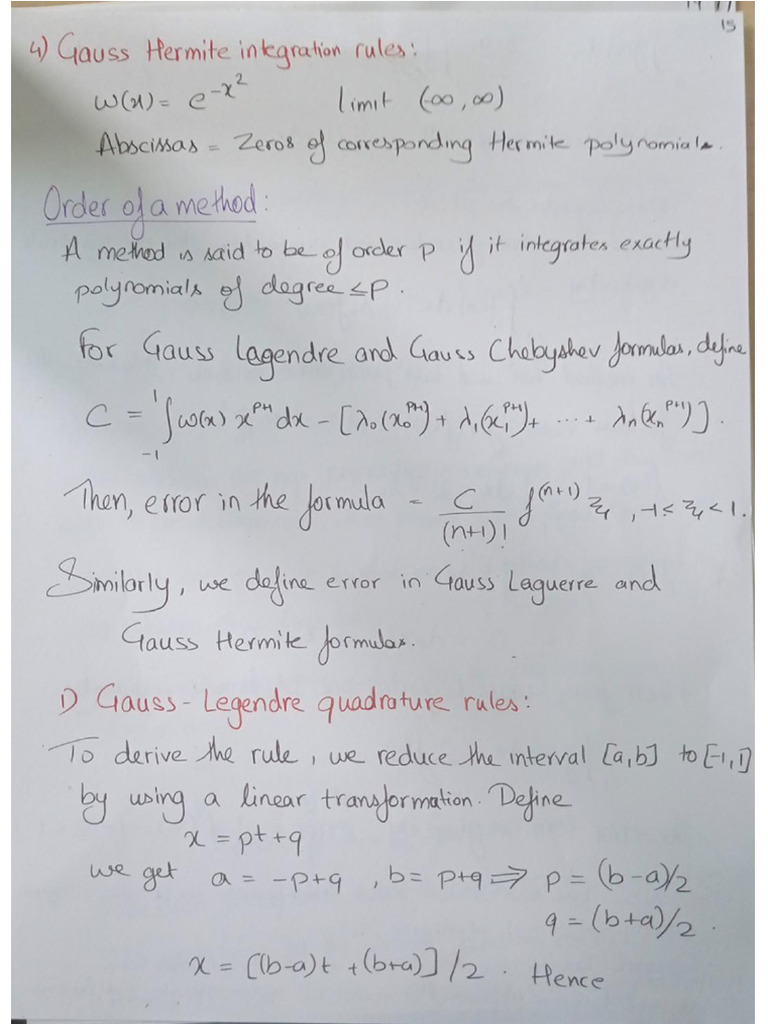 15
4) Gauss Hermite integration rules:
w(x) = e^{-x^2} limit (-∞, ∞)
Abscissas = Zeros of corresponding Hermite polynomials.
Order of a method:
A method is said to be of order p if it integrates exactly
polynomials of degree ≤ p.
For Gauss Lagendre and Gauss Chebyshev formulas, define
C = ∫_{-1}^{1} w(x) x^{p+1} dx - [λ₀(x₀^{p+1}) + λ₁(x₁^{p+1}) + ... + λₙ(xₙ^{p+1})].
Then, error in the formula = C/(n+1)! f^{(n+1)} ξ, -1 < ξ < 1.
Similarly, we define error in Gauss Laguerre and
Gauss Hermite formulas.
1) Gauss-Legendre quadrature rules:
To derive the rule, we reduce the interval [a,b] to [-1,1]
by using a linear transformation. Define
x = pt + q
we get a = -p+q, b = p+q ⇒ p = (b-a)/2
q = (b+a)/2.
x = [(b-a)t + (b+a)]/2. Hence